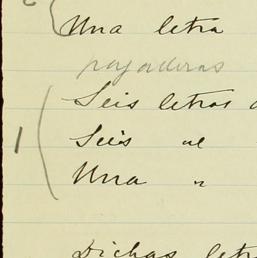 Una letra
pagaderas
Seis letras
Seis
1
Una "
Dichas letr